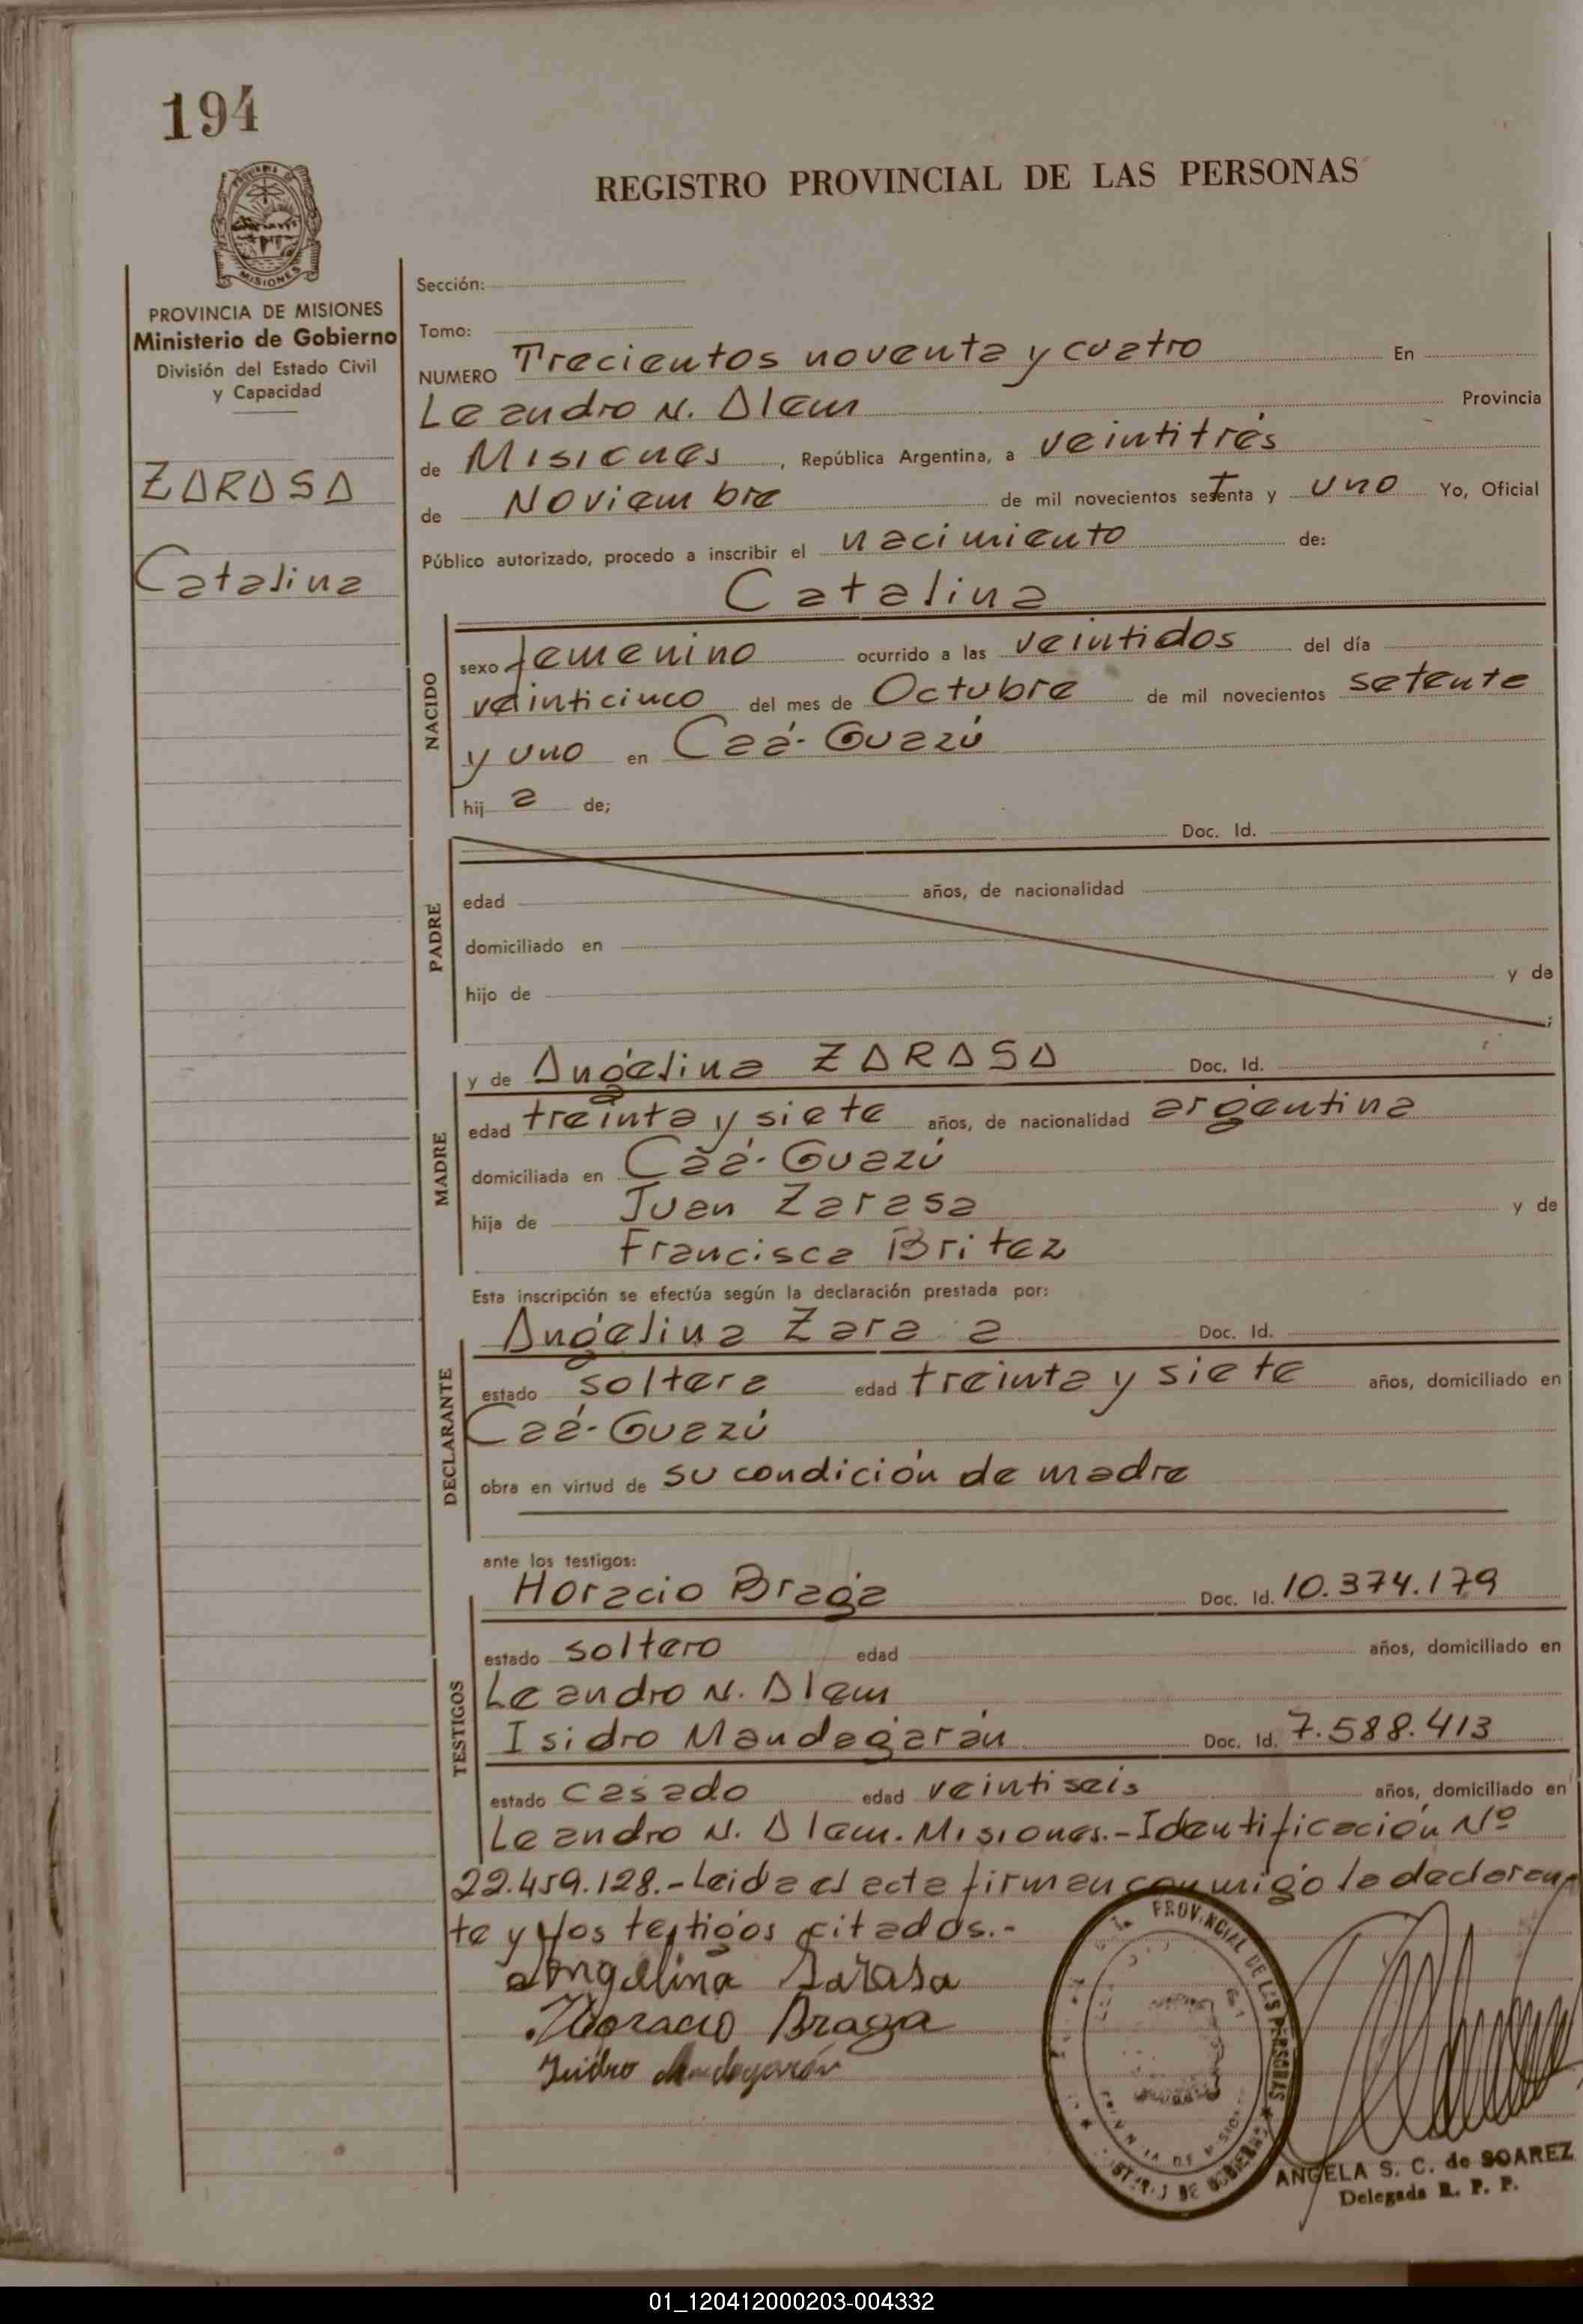 194
REGISTRO PROVINCIAL DE LAS PERSONAS
MISIONES
PROVINCIA DE MISIONES
Ministerio de Gobierno
División del Estado Civil
y Capacidad
ZARASA
Catalina
Sección:
Tomo:
NUMERO Trecientos noventa y cuatro En
Leandro N. Alem Provincia
de Misiones, República Argentina, a veintitrés
de Noviembre de mil novecientos setenta y uno Yo, Oficial
Público autorizado, procedo a inscribir el nacimiento de:
Catalina
NACIDO
sexo femenino ocurrido a las veintidos del día
veinticinco del mes de Octubre de mil novecientos setenta
y uno en Caá-Guazú
hij a de;
PADRE
Doc. Id.
edad años, de nacionalidad
domiciliado en
hijo de y de
;
MADRE
y de Angelina ZARASA Doc. Id.
edad treinta y siete años, de nacionalidad argentina
domiciliada en Caá-Guazú
hija de Juan Zarasa y de
Francisca Britez
Esta inscripción se efectúa según la declaración prestada por:
DECLARANTE
Angelina Zara a Doc. Id.
estado soltera edad treinta y siete años, domiciliado en
Caá-Guazú
obra en virtud de su condición de madre
ante los testigos:
TESTIGOS
Horacio Braga Doc. Id. 10.374.179
estado soltero edad años, domiciliado en
Leandro N. Alem
Isidro Mandagarán Doc. Id. 7.588.413
estado casado edad veintiseis años, domiciliado en
Leandro N. Alem. Misiones.-Identificación Nº
22.459.128.-Leida el acta firman conmigo la declaran
te y los testigos citados.-
Angelina Sarasa
Horacio Braga
Isidro Mandagarán
PROVINCIAL DE LAS PERSONAS
ANGELA S. C. de SOAREZ
Delegada R. P. P.
01_120412000203-004332